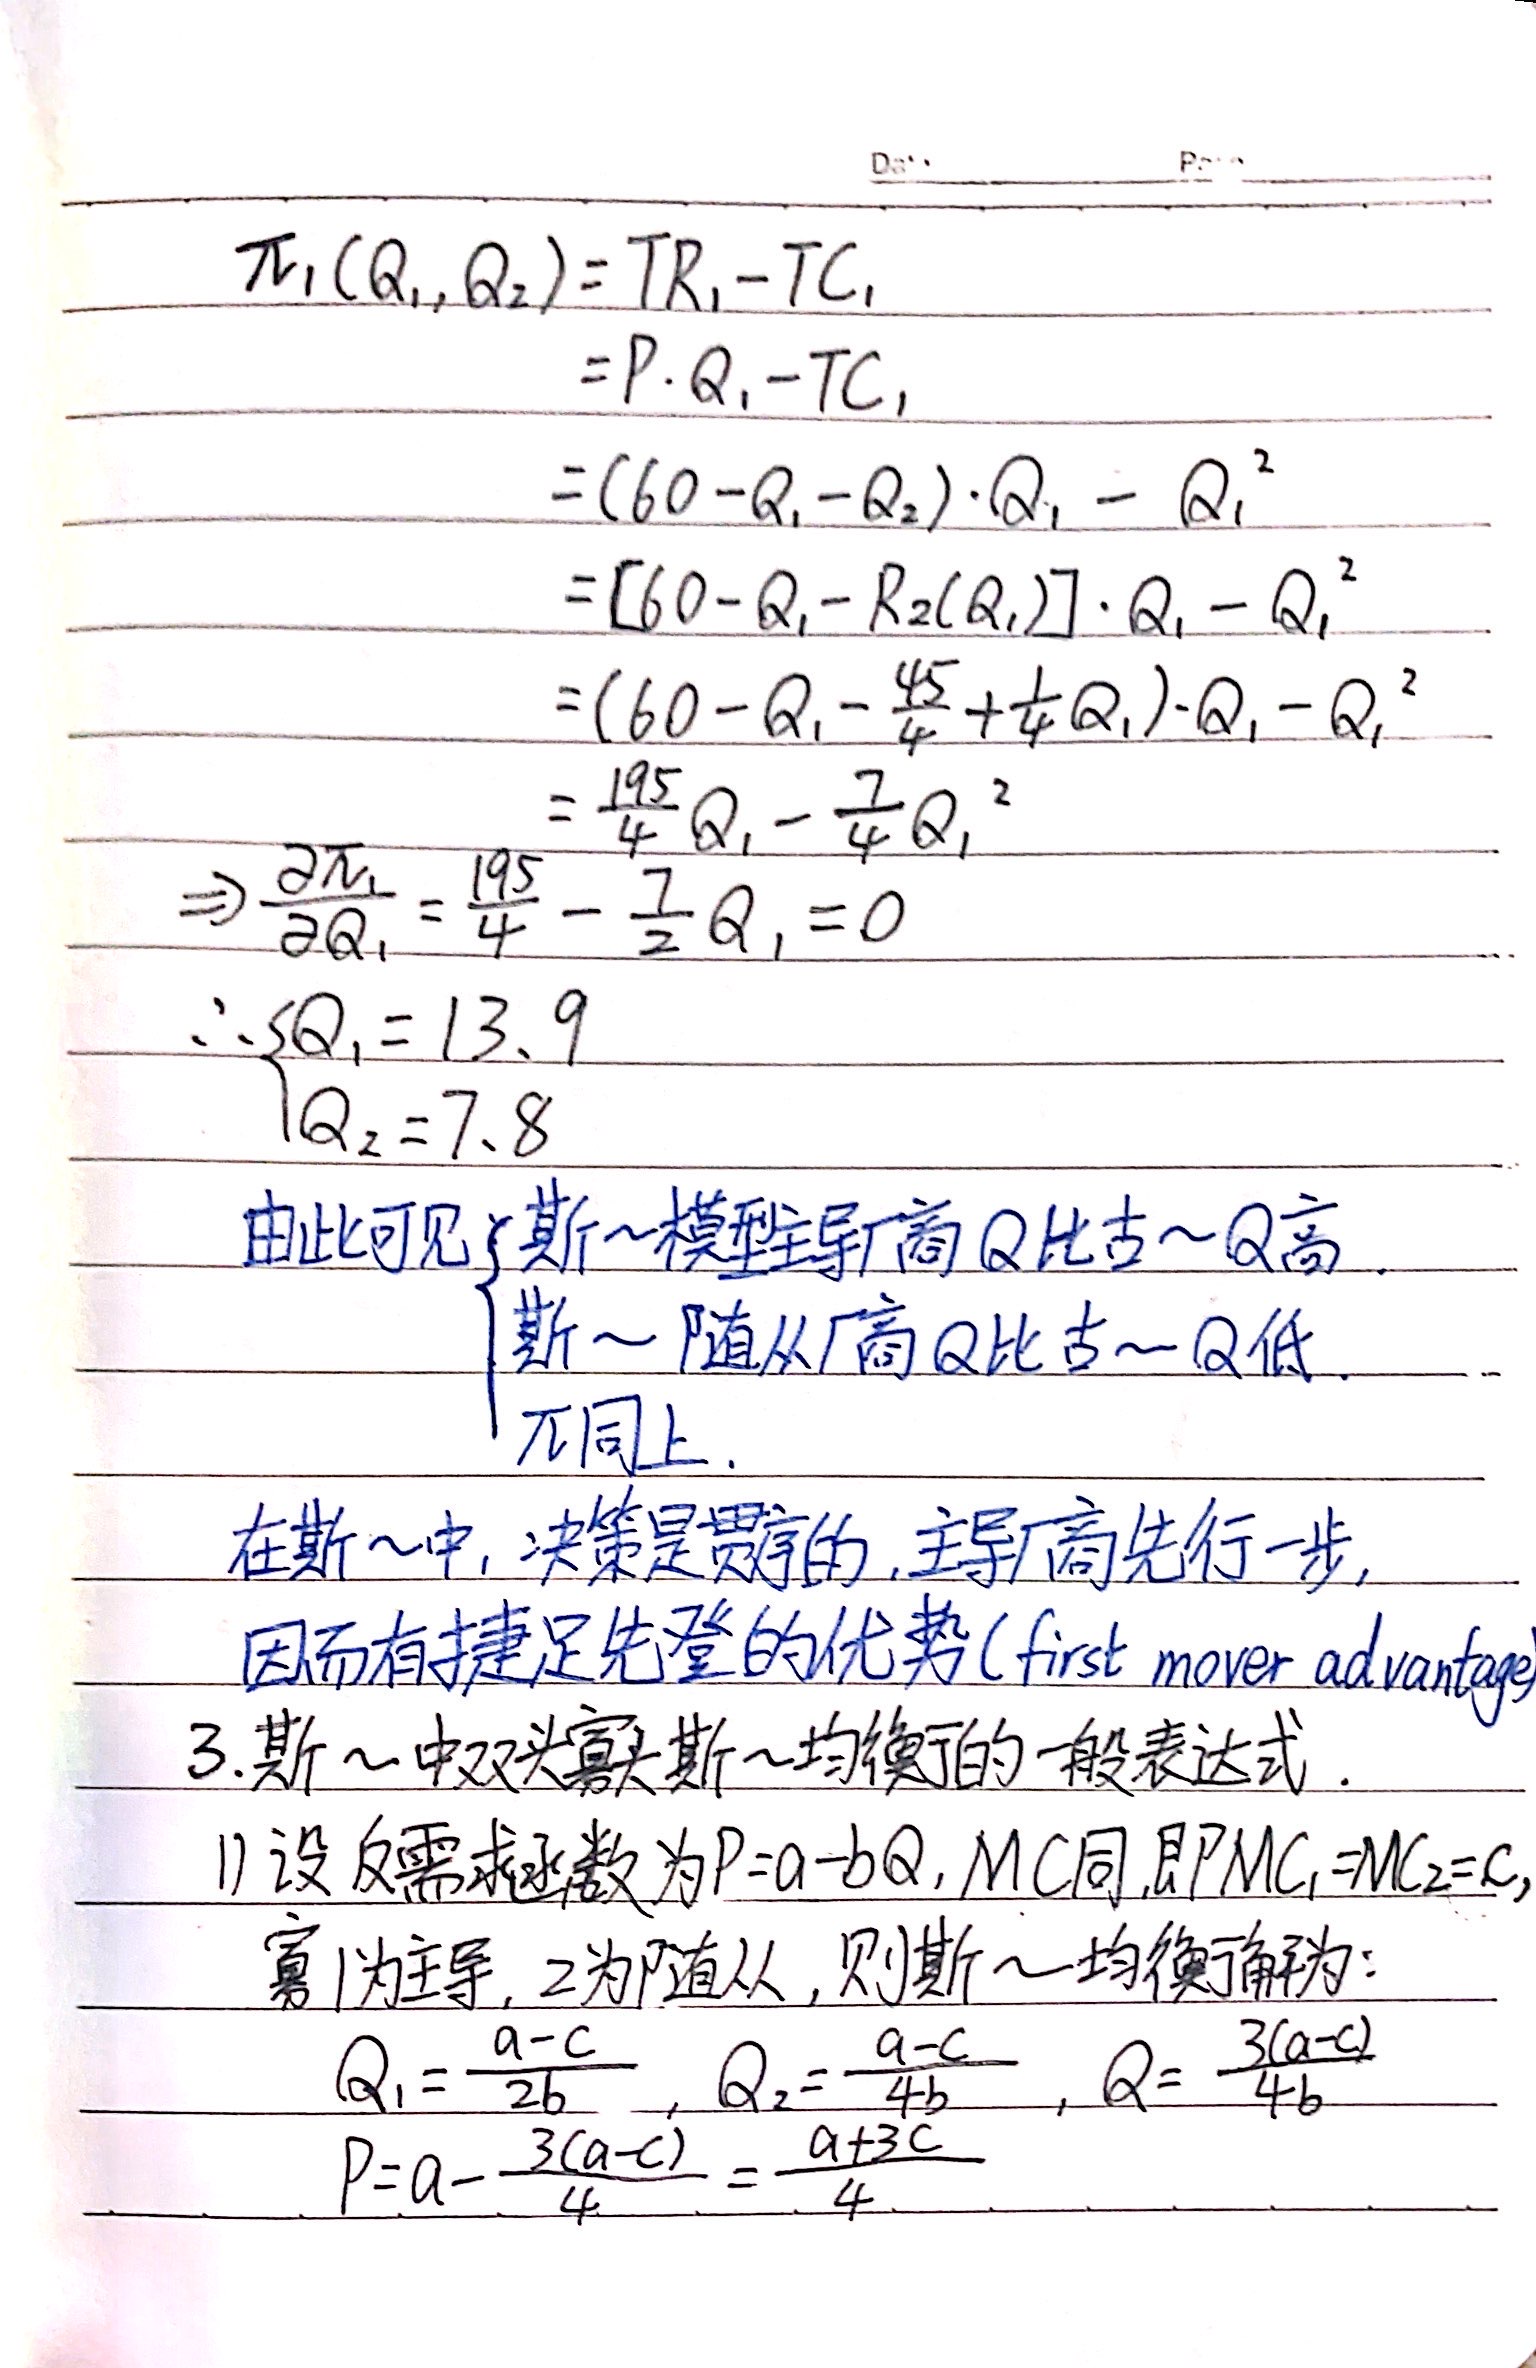 π₁(Q₁,Q₂)=TR₁-TC₁
=P·Q₁-TC₁
=(60-Q₁-Q₂)·Q₁-Q₁²
=[60-Q₁-R₂(Q₁)]·Q₁-Q₁²
=(60-Q₁-45/4+1/4Q₁)·Q₁-Q₁²
=195/4Q₁-7/4Q₁²
⇒∂π₁/∂Q₁=195/4-7/2Q₁=0
∴{Q₁=13.9
Q₂=7.8
由此可见{斯~模型主导厂商Q比古~Q高.
斯~随从厂商Q比古~Q低.
π同上.
在斯~中,决策是贯序的,主导厂商先行一步,
因而有捷足先登的优势(first mover advantage)
3.斯~中双头寡头斯~均衡的一般表达式.
1)设反需求函数为P=a-bQ,MC同,即MC₁=MC₂=C,
寡1为主导,2为随从,则斯~均衡解为:
Q₁=a-c/2b,Q₂=a-c/4b,Q=3(a-c)/4b
P=a-3(a-c)/4=a+3c/4